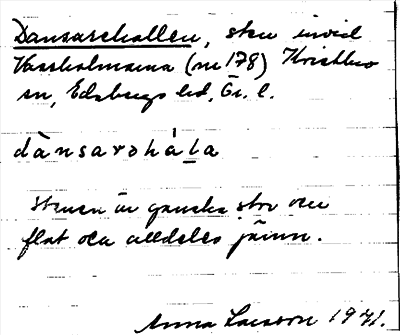 Dansarehallen, sten invid
Vassholmarna (nr 178) Kristbro
sn, Edsbergs hd, Ör. l.
dànsarəhála
Stenen är ganska stor och
flat och alldeles jämn.
Anna Larsson 1941.